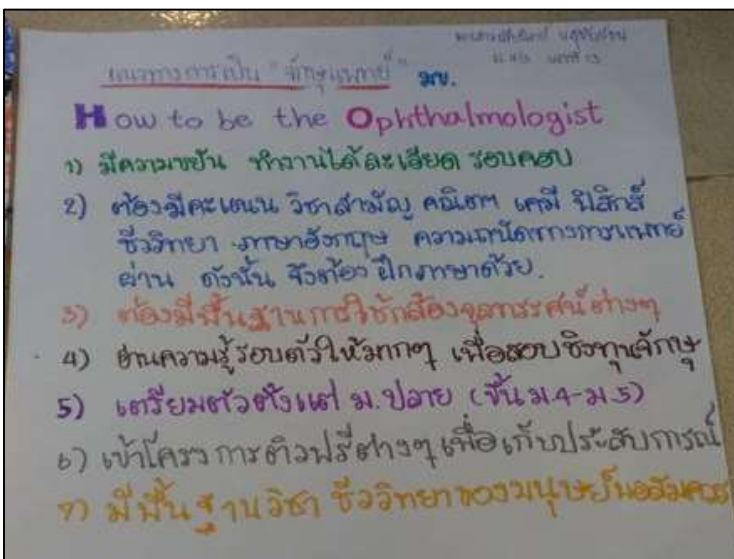 แนวทางการเป็น "จักษุแพทย์" มข.
How to be the Ophthalmologist
1) มีความขยัน ทำงานได้ละเอียด รอบคอบ
2) ต้องมีคะแนน วิชาสามัญ คณิตฯ เคมี ฟิสิกส์
ชีววิทยา ภาษาอังกฤษ ความถนัดทางการแพทย์
ผ่าน ดังนั้น จึงต้องฝึกภาษาด้วย.
3) ต้องมีพื้นฐานการใช้กล้องจุลทรรศน์ต่างๆ
4) อ่านความรู้รอบตัวให้มากๆ เพื่อสอบชิงทุนจักษุ
5) เตรียมตัวตั้งแต่ ม.ปลาย (ขึ้น ม.4-ม.5)
6) เข้าโครงการติวฟรีต่างๆ เพื่อเก็บประสบการณ์
7) มีพื้นฐานวิชา ชีววิทยาของมนุษย์